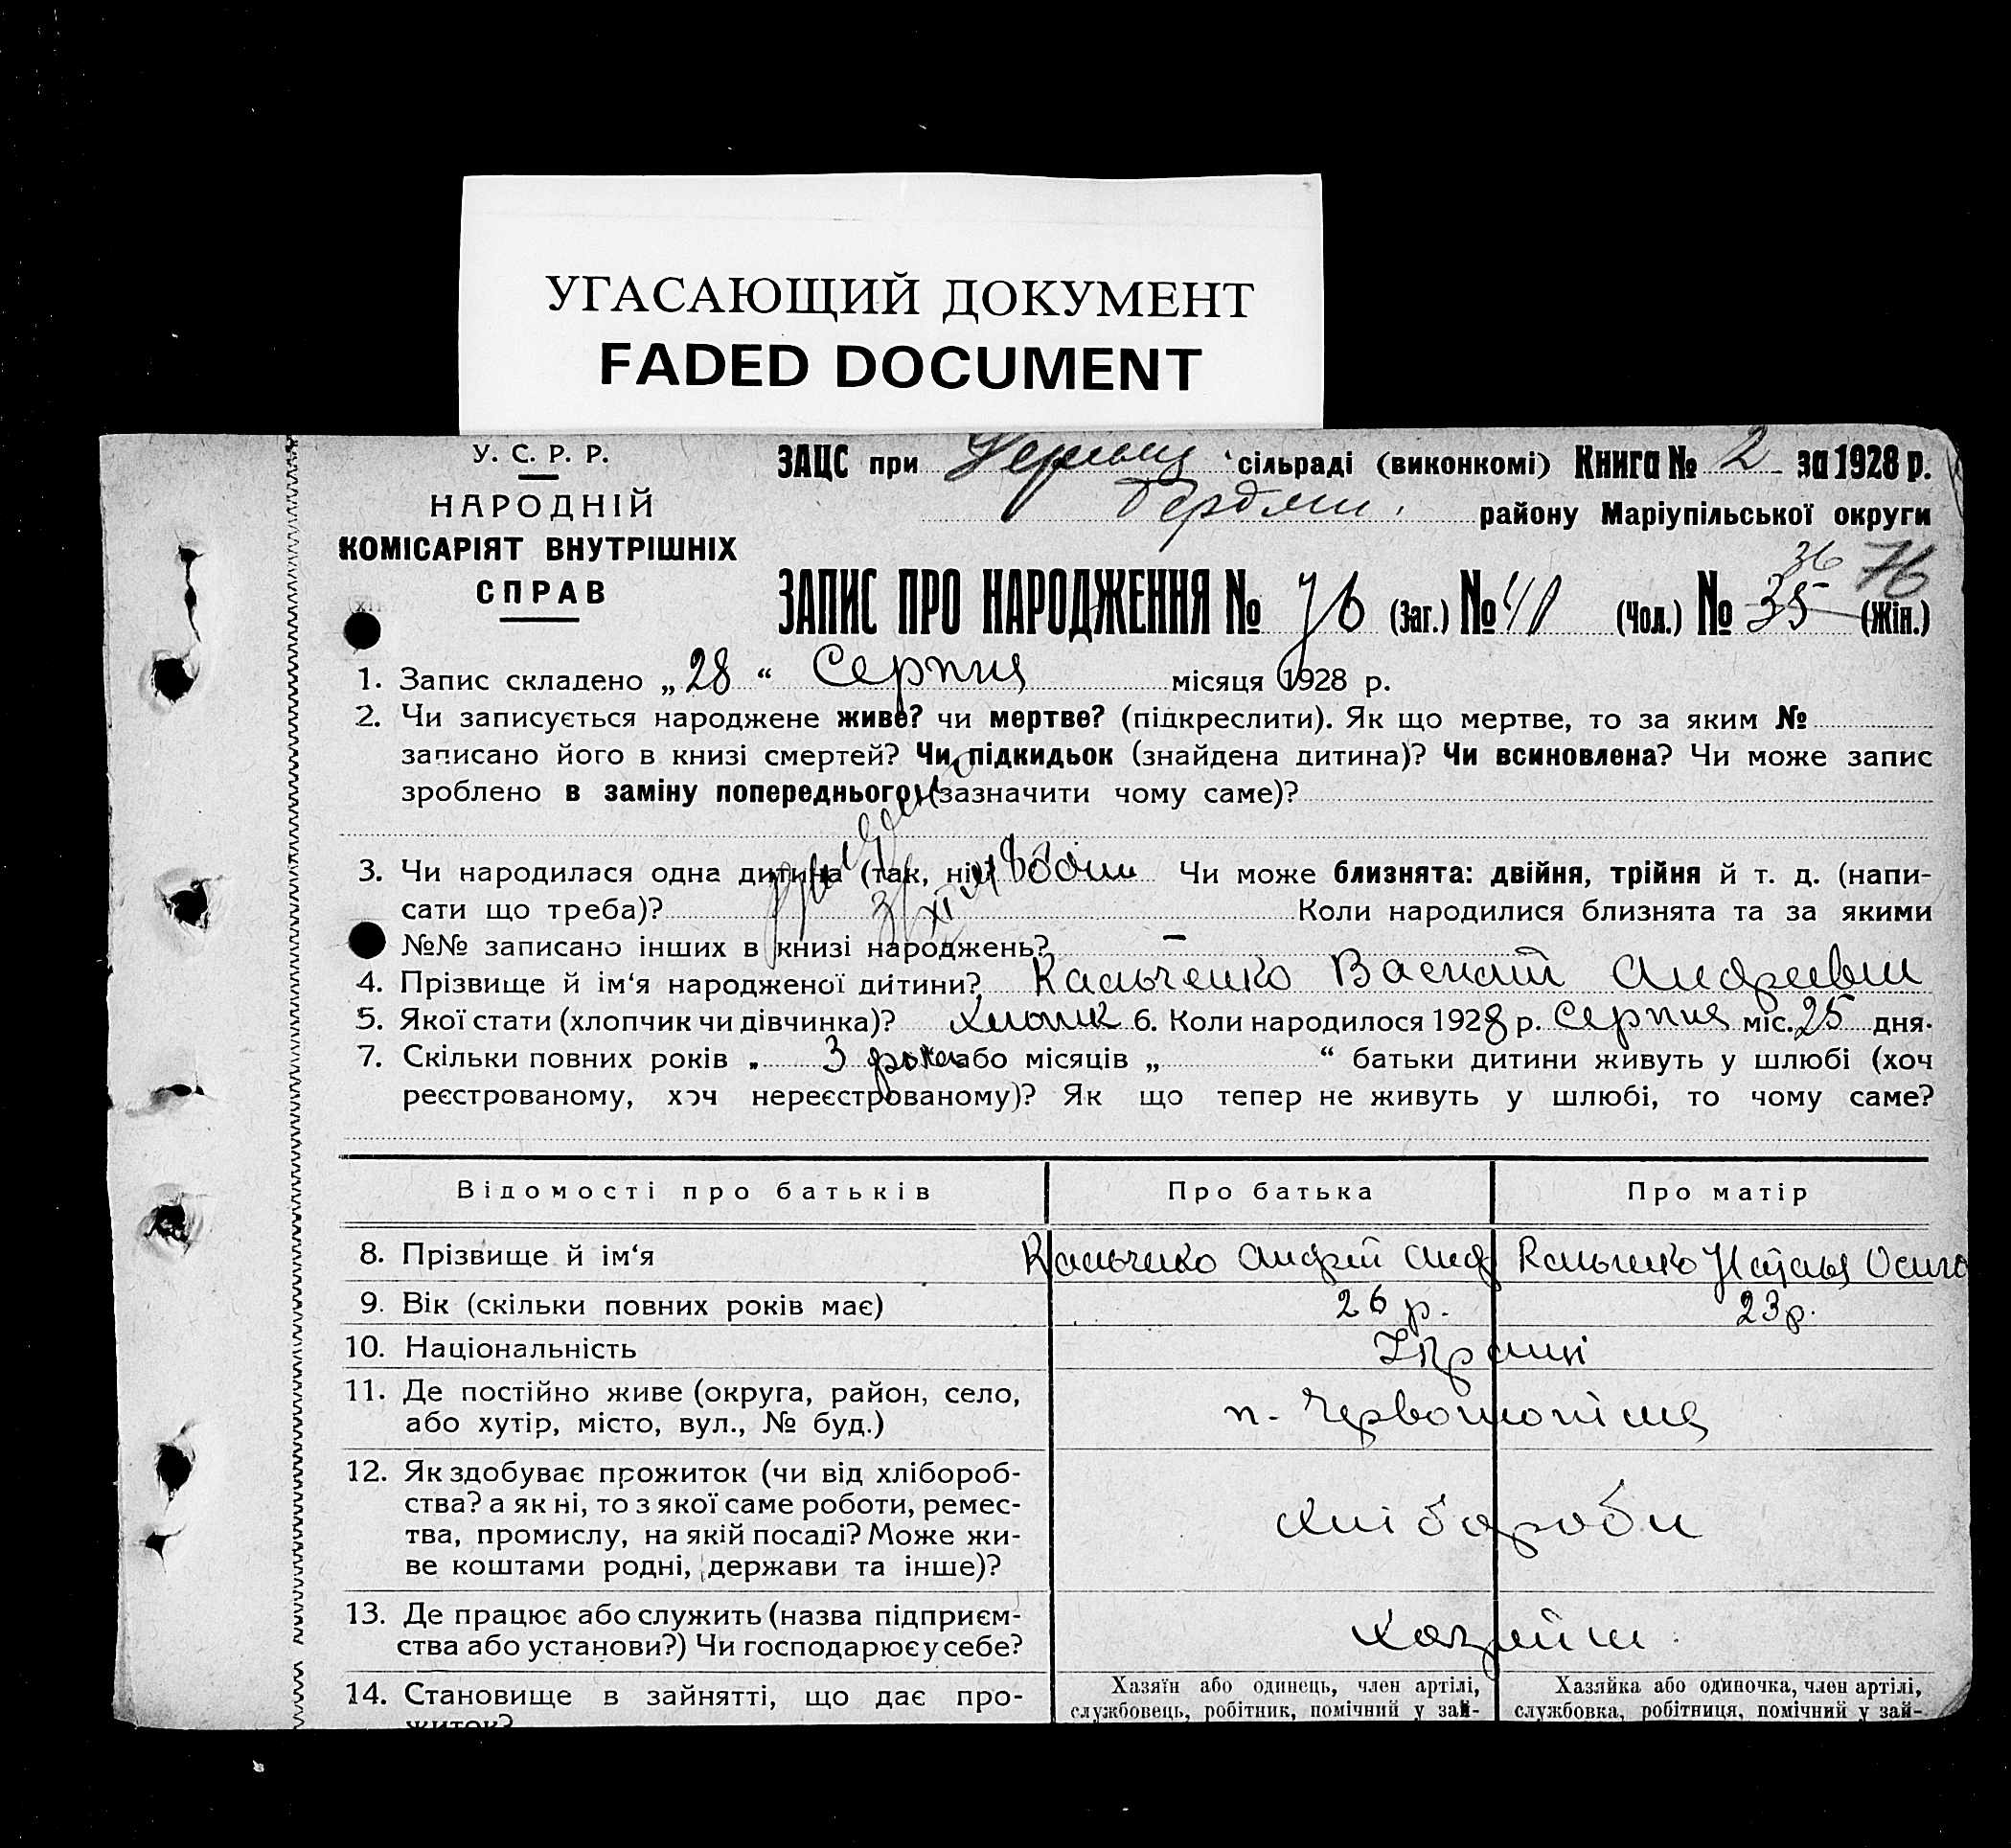 УГАСАЮЩИЙ ДОКУМЕНТ
FADED DOCUMENT
У. С. Р. Р.
НАРОДНІЙ
КОМІСАРІЯТ ВНУТРІШНІХ
СПРАВ
ЗАЦС при сільраді (виконкомі) Книга № 2 за 1928 р.
району Маріупільської округи
ЗАПИС ПРО НАРОДЖЕННЯ № 76 (Заг.) № 40 (Чол.) № 35 36 (Жін.) 76
1. Запис складено „28“ Серпня місяця 1928 р.
2. Чи записується народжене живе? чи мертве? (підкреслити). Як що мертве, то за яким №
записано його в книзі смертей? Чи підкидьок (знайдена дитина)? Чи всиновлена? Чи може запис
зроблено в заміну попереднього (зазначити чому саме)?
3. Чи народилася одна дитина (так, ні) Чи може близнята: двійня, трійня й т. д. (напи-
сати що треба)? Коли народилися близнята та за якими
№№ записано інших в книзі народжень? –
4. Прізвище й ім‘я народженої дитини? Кальченко Василь Андреевич
5. Якої стати (хлопчик чи дівчинка)? хлопчик 6. Коли народилося 1928 р. Серпня міс. 25 дня.
7. Скільки повних років „ 3 роки або місяців „ “ батьки дитини живуть у шлюбі (хоч
реєстрованому, хоч нереєстрованому)? Як що тепер не живуть у шлюбі, то чому саме?
Відомості про батьків Про батька Про матір
8. Прізвище й ім‘я Кальченко Андрій Анд Кальченко Наталья Осипо
9. Вік (скільки повних років має) 26 р. 23 р.
10. Національність Україні
11. Де постійно живе (округа, район, село,
або хутір, місто, вул., № буд.) п.
12. Як здобуває прожиток (чи від хлібороб-
ства? а як ні, то з якої саме роботи, ремес-
тва, промислу, на якій посаді? Може жи-
ве коштами родні, держави та інше)? хлібороби
13. Де працює або служить (назва підприєм-
ства або установи?) Чи господарює у себе?
14. Становище в зайнятті, що дає про-
житок?
Хазяїн або одинець, член артілі,
службовець, робітник, помічний у зай-
Хазяйка або одиночка, член артілі,
службовка, робітниця, помічний у зай-